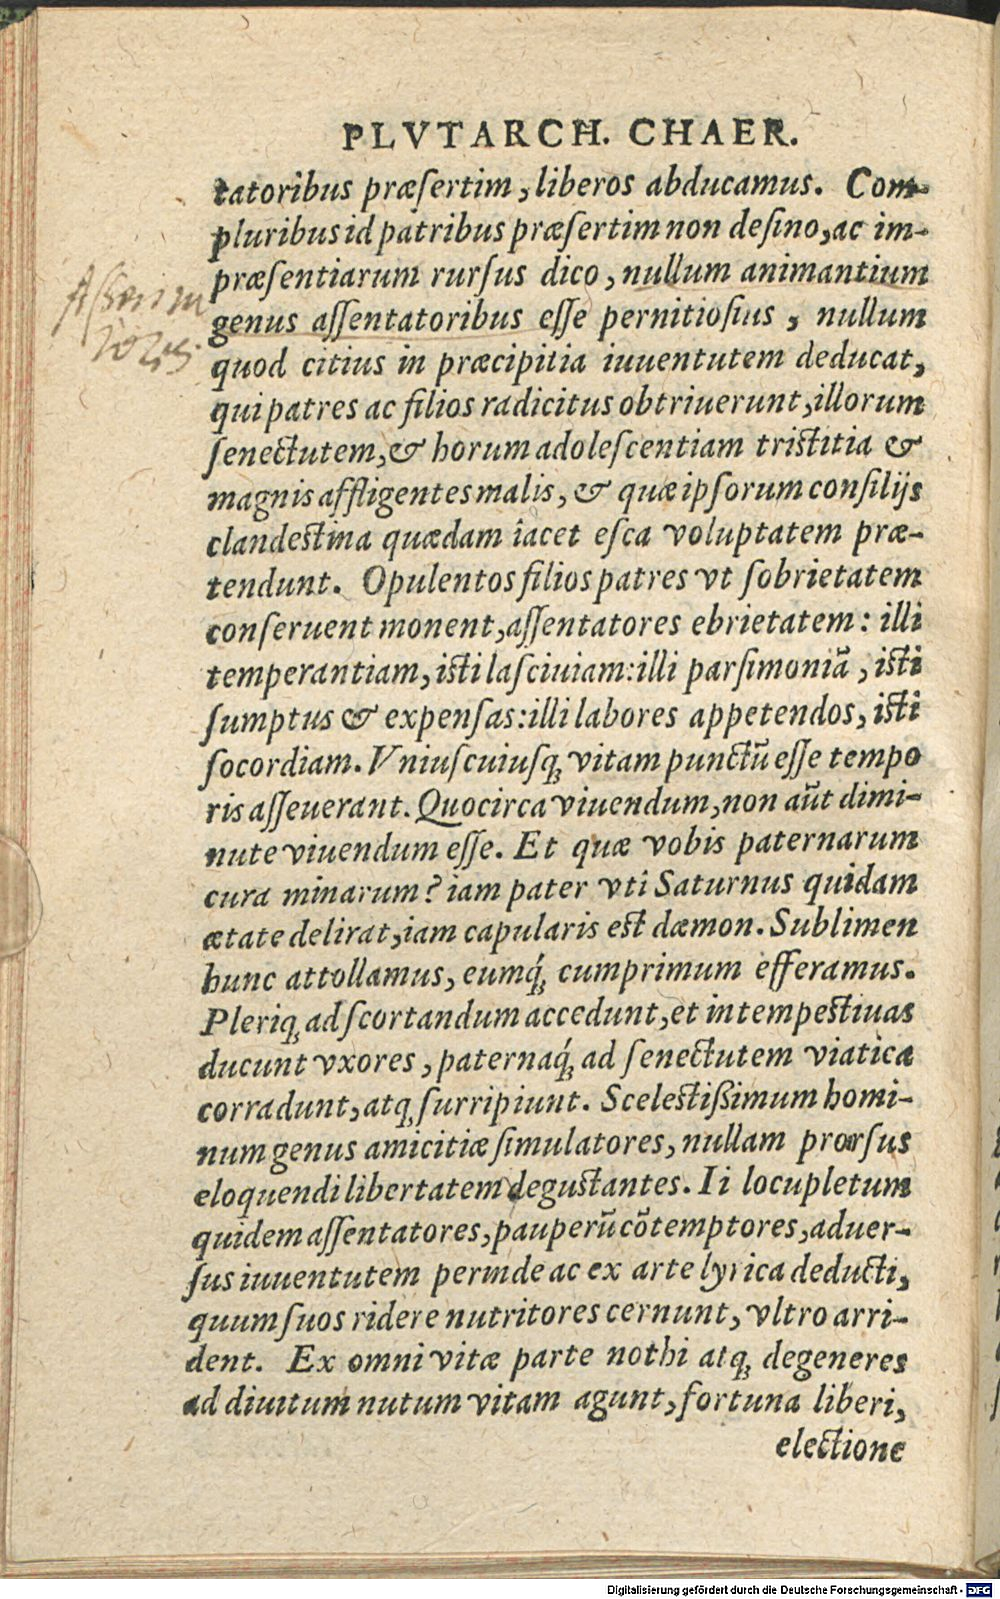 PLVTARCH. CHAER.
tatoribus præſertim, liberos abducamus. Com-
pluribus id patribus præſertim non deſino, ac im-
præſentiarum rurſus dico, nullum animantium
genus aſſentatoribus eſſe pernitioſius, nullum
quod citius in præcipitia iuuentutem deducat,
qui patres ac filios radicitus obtriuerunt, illorum
ſenectutem, & horum adoleſcentiam triſtitia &
magnis affligentes malis, & quæ ipſorum conſilijs
clandeſtina quædam iacet eſca voluptatem præ-
tendunt. Opulentos filios patres vt ſobrietatem
conſeruent monent, aſſentatores ebrietatem: illi
temperantiam, iſti laſciuiam: illi parſimoniā, iſti
ſumptus & expenſas: illi labores appetendos, iſti
ſocordiam. Vniuſcuiuſq; vitam punctū eſſe tempo
ris aſſeuerant. Quocirca viuendum, non aūt dimi-
nute viuendum eſſe. Et quæ vobis paternarum
cura minarum? iam pater vti Saturnus quidam
ætate delirat, iam capularis eſt dæmon. Sublimen
hunc attollamus, eumq́; cumprimum efferamus.
Pleriq; ad ſcortandum accedunt, et intempeſtiuas
ducunt vxores, paternaq́; ad ſenectutem viatica
corradunt, atq; ſurripiunt. Sceleſtißimum homi-
num genus amicitiæ ſimulatores, nullam prorſus
eloquendi libertatem deguſtantes. Ii locupletum
quidem aſſentatores, pauperū cōtemptores, aduer-
ſus iuuentutem perinde ac ex arte lyrica deducti,
quum ſuos ridere nutritores cernunt, vltro arri-
dent. Ex omni vitæ parte nothi atq; degeneres
ad diuitum nutum vitam agunt, fortuna liberi,
electione
Digitalisierung gefördert durch die Deutsche Forschungsgemeinschaft - DFG